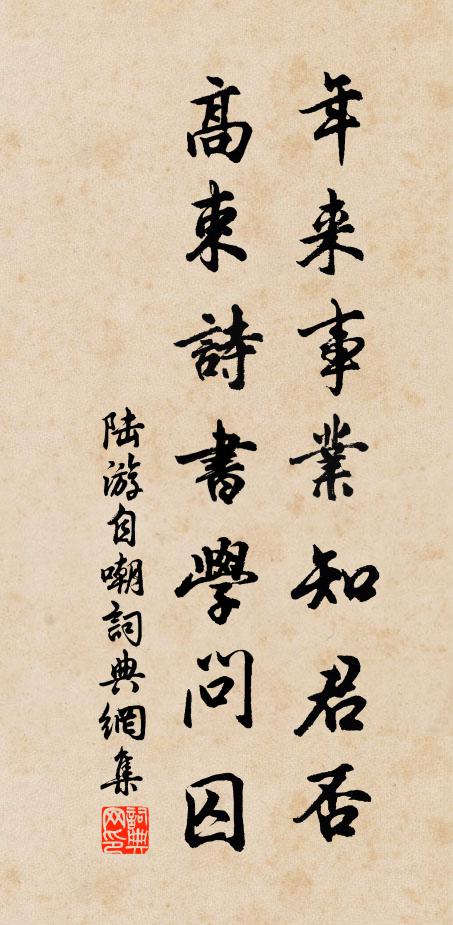 年来事業知君否
高束詩書學問囚
陆游自嘲詞典網集
詞典网印